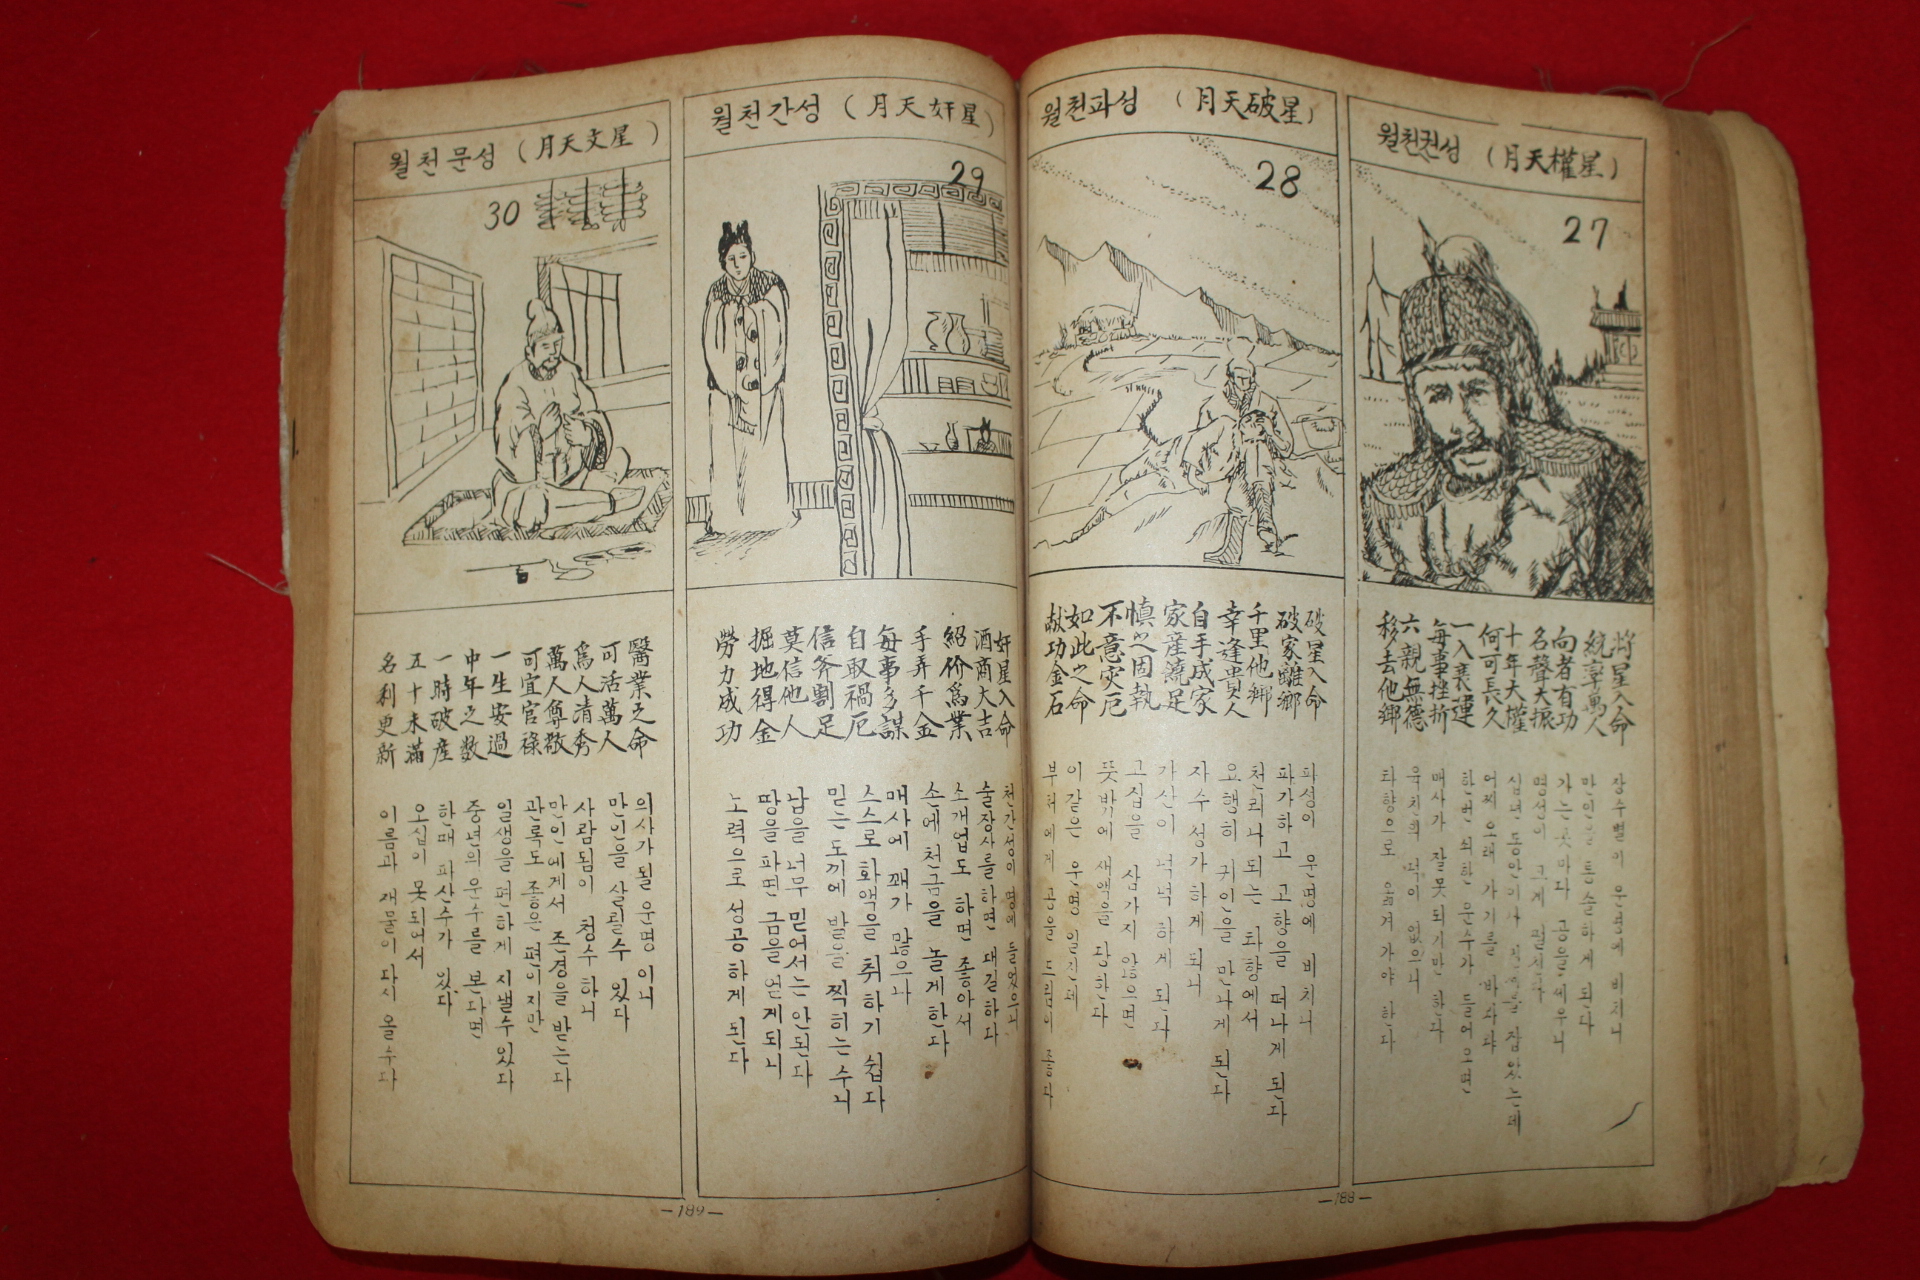 월천권성 (月天權星)
27
將星入命
統率萬人
向者有功
名聲大振
十年大權
何可長久
一入衰運
每事挫折
六親無德
移去他鄕
장수별이 운명에 비치니
만인을 통솔하게 된다
가는곳마다 공을세우니
명성이 크게 떨친다
십년동안이나 잡았는데
어찌 오래 가기를 바라랴
한번 쇠한 운수가 들어오면
매사가 잘못되기만 한다
육친의 덕이 없으니
타향으로 옮겨 가야 한다
월천파성 (月天破星)
28
破星入命
破家離鄕
千里他鄕
幸逢貴人
自手成家
家産饒足
愼之固執
不意灾厄
如此之命
献功金石
파성이 운명에 비치니
파가하고 고향을 떠나게 된다
천리나 되는 타향에서
요행히 귀인을 만나게 된다
자수성가하게 되니
가산이 넉넉하게 된다
고집을 삼가지 않으면
뜻밖에 재액을 당한다
이같은 운명 일진데
부처에게 공을 드림이 좋다
—188—
월천간성 (月天奸星)
29
奸星入命
酒商大吉
紹价爲業
手弄千金
每事多謀
自取禍厄
信斧割足
莫信他人
掘地得金
勞力成功
천간성이 명에 들었으니
술장사를하면 대길하다
소개업도 하면 좋아서
손에 천금을 놀게한다
매사에 꾀가 많으나
스스로 화액을 취하기 쉽다
믿는 도끼에 발을 찍히는 수니
남을 너무 믿어서는 안된다
땅을파면 금을 얻게되니
노력으로 성공하게 된다
월천문성 (月天文星)
30
醫業之命
可活萬人
爲人淸秀
萬人尊敬
可宜官祿
一生安過
中年之数
一時破産
五十未滿
名利更新
의사가될 운명 이니
만인을 살릴수 있다
사람됨이 청수하니
만인에게서 존경을 받는다
관록도 좋은 편이지만
일생을 편하게 지낼수있다
중년의 운수를 본다면
한때 파산수가 있다
오십이 못되어서
이름과 재물이 다시 올수다
—189—